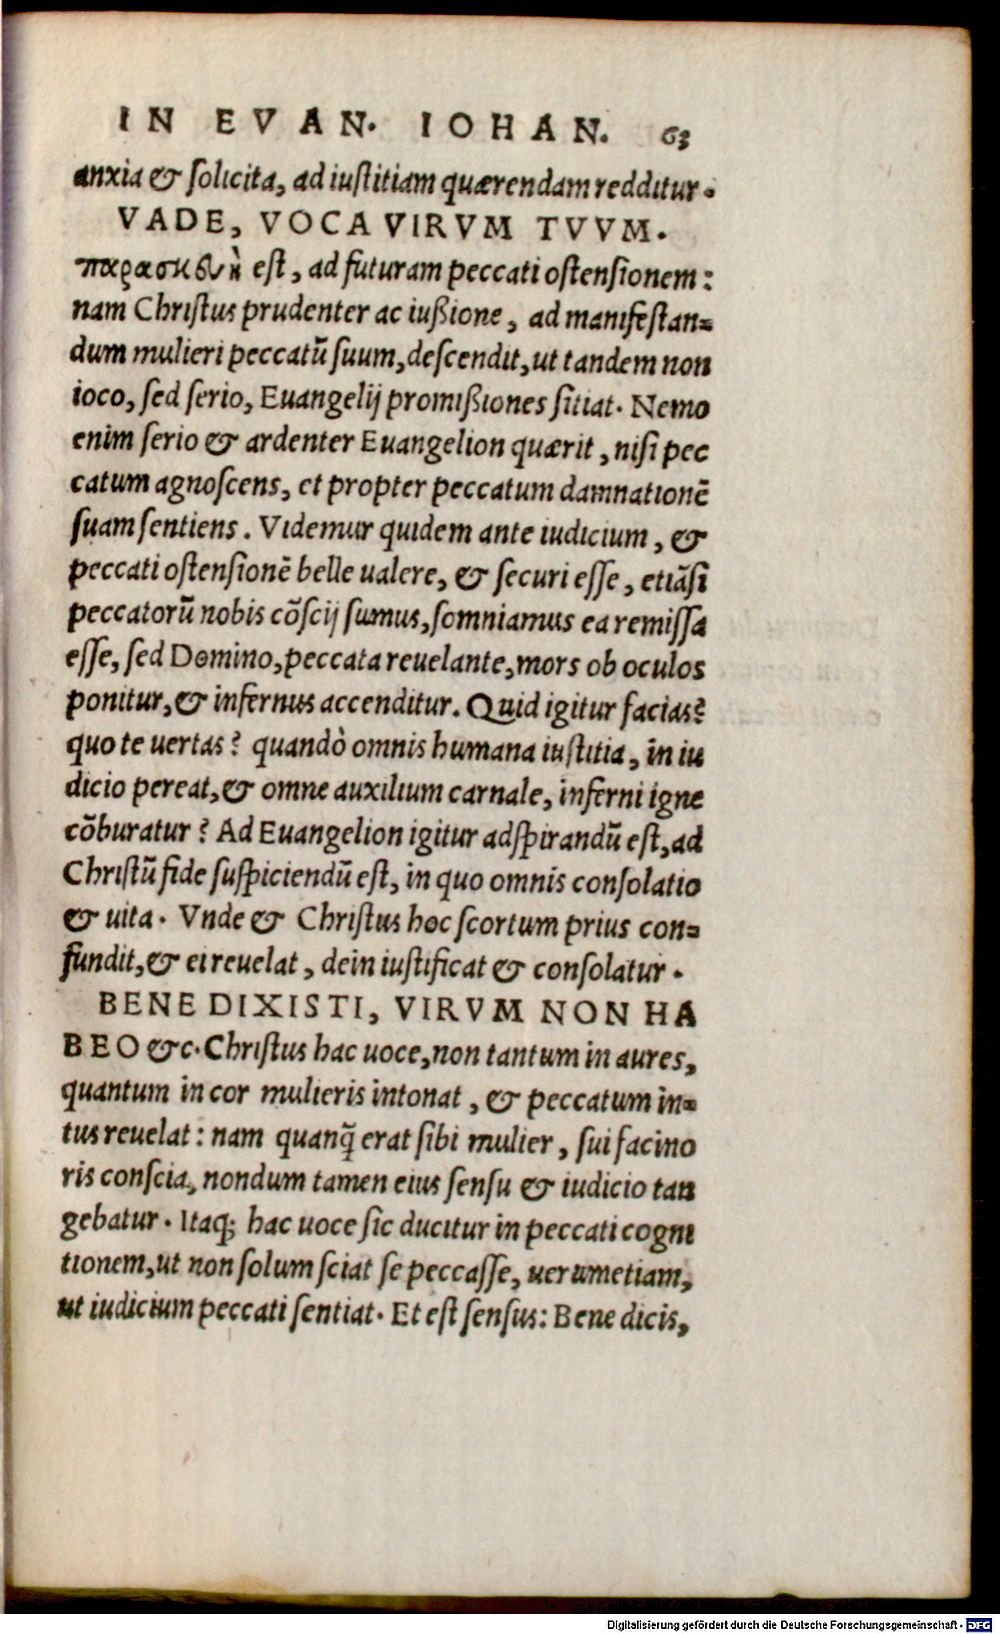 IN EVAN. IOHAN. 63
anxia & ſolicita, ad iuſtitiam quærendam redditur.
VADE, VOCA VIRVM TVVM.
παρασκευὴ eſt, ad futuram peccati oſtenſionem:
nam Chriſtus prudenter ac iußione, ad manifeſtan=
dum mulieri peccatũ ſuum, deſcendit, ut tandem non
ioco, ſed ſerio, Euangelij promißiones ſitiat. Nemo
enim ſerio & ardenter Euangelion quærit, niſi pec
catum agnoſcens, et propter peccatum damnationẽ
ſuam ſentiens. Videmur quidem ante iudicium, &
peccati oſtenſionẽ belle ualere, & ſecuri eſſe, etiãſi
peccatorũ nobis cõſcij ſumus, ſomniamus ea remiſſa
eſſe, ſed Domino, peccata reuelante, mors ob oculos
ponitur, & infernus accenditur. Quid igitur facias?
quo te uertas? quandò omnis humana iuſtitia, in iu
dicio pereat, & omne auxilium carnale, inferni igne
cõburatur? Ad Euangelion igitur adſpirandũ eſt, ad
Chriſtũ fide ſuſpiciendũ eſt, in quo omnis conſolatio
& uita. Vnde & Chriſtus hoc ſcortum prius con=
fundit, & ei reuelat, dein iuſtificat & conſolatur.
BENE DIXISTI, VIRVM NON HA
BEO &c. Chriſtus hac uoce, non tantum in aures,
quantum in cor mulieris intonat, & peccatum in=
tus reuelat: nam quanq̃ erat ſibi mulier, ſui facino
ris conſcia, nondum tamen eius ſenſu & iudicio tan
gebatur. Itaq; hac uoce ſic ducitur in peccati cogni
tionem, ut non ſolum ſciat ſe peccaſſe, uerumetiam,
ut iudicium peccati ſentiat. Et eſt ſenſus: Bene dicis,
Digitalisierung gefördert durch die Deutsche Forschungsgemeinschaft - DFG